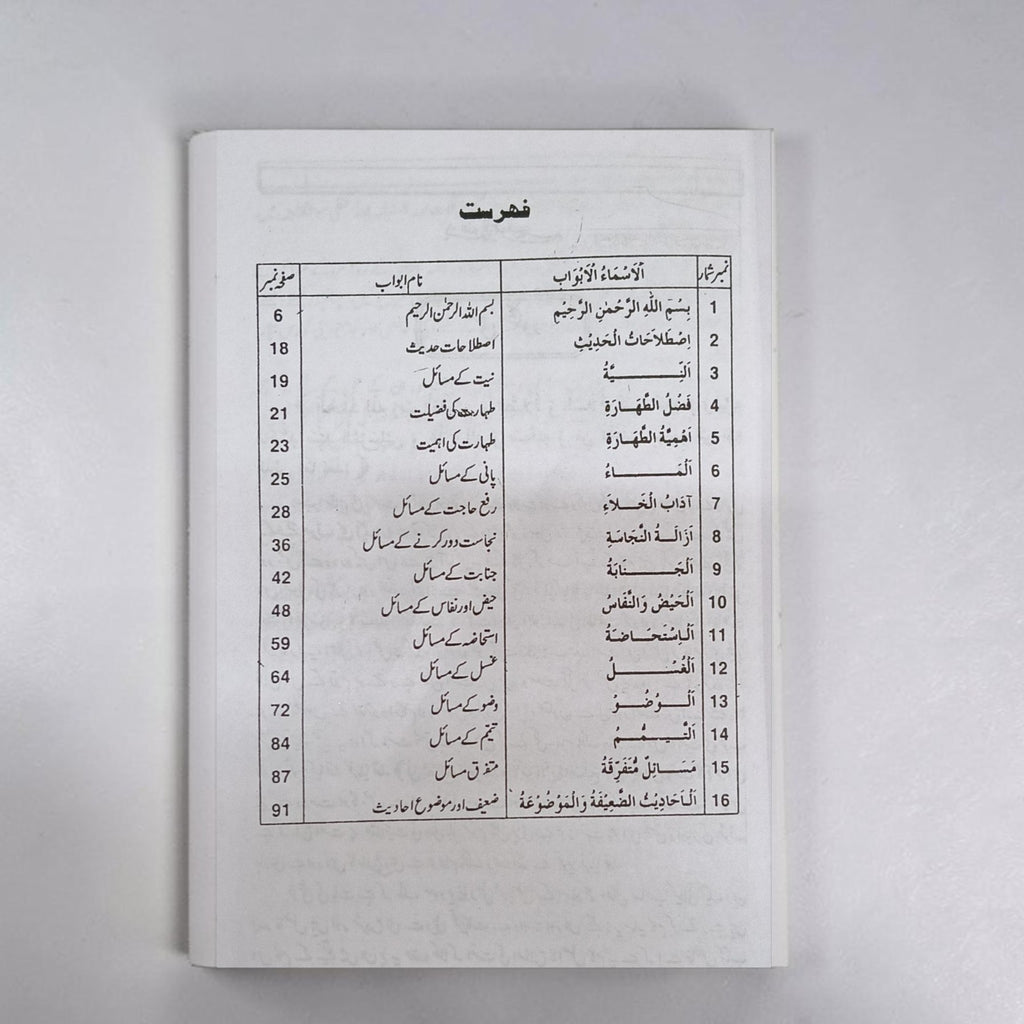 فهرست
نمبر شمار اَلْاَسْمَاءُ الْاَبْوَابِ نام ابواب صفحہ نمبر
1 بِسْمِ اللّٰهِ الرَّحْمٰنِ الرَّحِيْمِ بسم اللہ الرحمٰن الرحیم 6
2 اِصْطَلَاحَاتُ الْحَدِيْثِ اصطلاحات حدیث 18
3 اَلنِّـــــيَّةُ نیت کے مسائل 19
4 فَضْلُ الطَّهَـارَةِ طہارت کی فضیلت 21
5 اَهْمِيَّةُ الطَّهَـارَةِ طہارت کی اہمیت 23
6 اَلْمَـــــاءُ پانی کے مسائل 25
7 آدَابُ الْخَـلَاَءِ رفع حاجت کے مسائل 28
8 اَزَالَـةُ النَّجَاسَةِ نجاست دور کرنے کے مسائل 36
9 اَلْجَـــــنَابَةُ جنابت کے مسائل 42
10 اَلْحَيْضُ وَالنَّفَاسُ حیض اور نفاس کے مسائل 48
11 اَلْـاِسْتَحَـاضَـةُ استحاضہ کے مسائل 59
12 اَلْغُسْـــــلُ غسل کے مسائل 64
13 اَلْـــوُضُـــوُ وضو کے مسائل 72
14 اَلتَّـيَـمُّـمُ تیمّم کے مسائل 84
15 مَسَـائِلٌ مُّتَفَرِّقَةُ متفرق مسائل 87
16 اَلْـاَحَادِيْثُ الضَّعِيْفَةُ وَالْمَوْضُوْعَةُ ضعیف اور موضوع احادیث 91